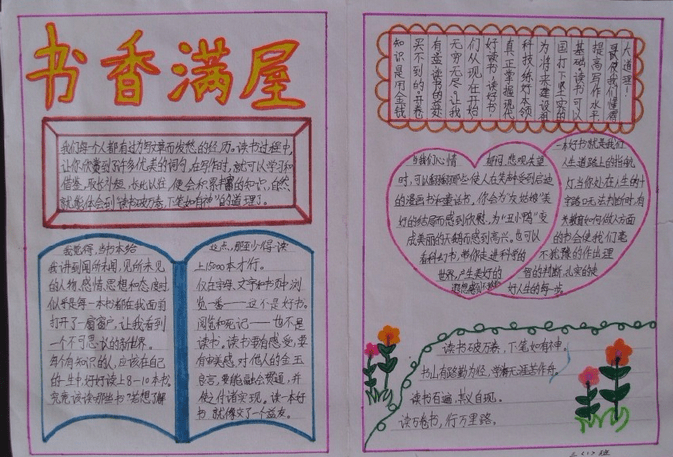 书香满屋
我们每个人都有过为写文章而发愁的经历。读书过程中,
让你欣赏到了许多优美的词句,在写作时,就可以学习和
借鉴,取长补短,长此以往,便会积累丰富的知识,自然
就能体会到“读书破万卷,下笔如有神”的道理了。
我觉得,当书本给
我讲到闻所未闻,见所未见
的人物、感情、思想和态度时
似乎是每一本书都在我面前
打开了一扇窗户,让我看到
一个不可思议的新世界。
每个有知识的人,应该在自己
的一生中,好好读上8-10本书,
究竟该读哪些书"若想了解
这点,那至少得读
上15000本才行。
仅在字母、文字和书页中浏
览一番——这不是好书。
阅览和死记——也不是
读书。读书要有感受,要
有审美感,对他人的金玉
良言,要能融会贯通,并
使之付诸实现。读一本好
书,就像交了一个益友。
知识是用金钱
买不到的!开卷
有益,读书的益处
无穷无尽!让我
们从现在开始
好读书,读好书!
真正掌握现代
科技练好本领
为将来建设祖
国打下坚实的
基础,读书可以
提高写作水平
使我们懂得
大道理!
当我们心情
时,可以翻翻那些使人在笑声中受到启迪
的漫画书和童话书,你会为“灰姑娘”美
好的结局而感到欣慰,为“丑小鸭”变
成美丽的天鹅而感到高兴。也可以
看科幻书,带你走进科学的
世界,产生美好的
一本好书就是我们
人生道路上的指航
灯,当你处在人生的十
字路口无法判断时,有
关教育如何做人方面
的书会使我们毫
不犹豫的作出理
智的判断,扎实的走
好人生的每一步。
读书破万卷,下笔如有神。
书山有路勤为径,学海无涯苦作舟。
读书百遍,其义自现。
读万卷书,行万里路。